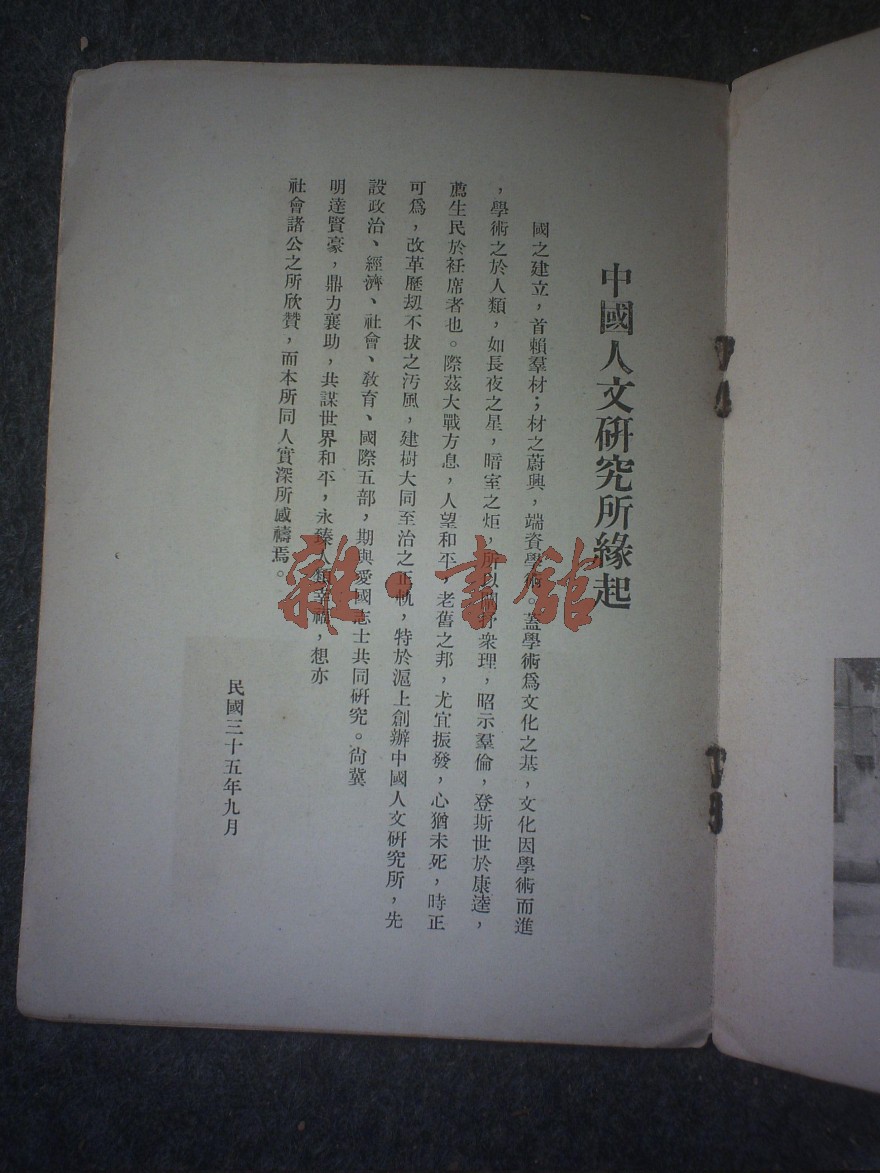 中國人文研究所緣起
國之建立，首賴羣材；材之蔚興，端資學術。蓋學術爲文化之基，文化因學術而進
，學術之於人類，如長夜之星，暗室之炬，所以衆理，昭示羣倫，登斯世於康逵，
薦生民於衽席者也。際茲大戰方息，人望和平，老舊之邦，尤宜振發，心猶未死，時正
可爲，改革歷刧不拔之汚風，建樹大同至治之正軌，特於滬上創辦中國人文研究所，先
設政治、經濟、社會、敎育、國際五部，期與愛國志士共同研究。尙冀
明達賢豪，鼎力襄助，共謀世界和平，永臻人類幸福，想亦
社會諸公之所欣贊，而本所同人實深所感禱焉。
民國三十五年九月
雜·書館